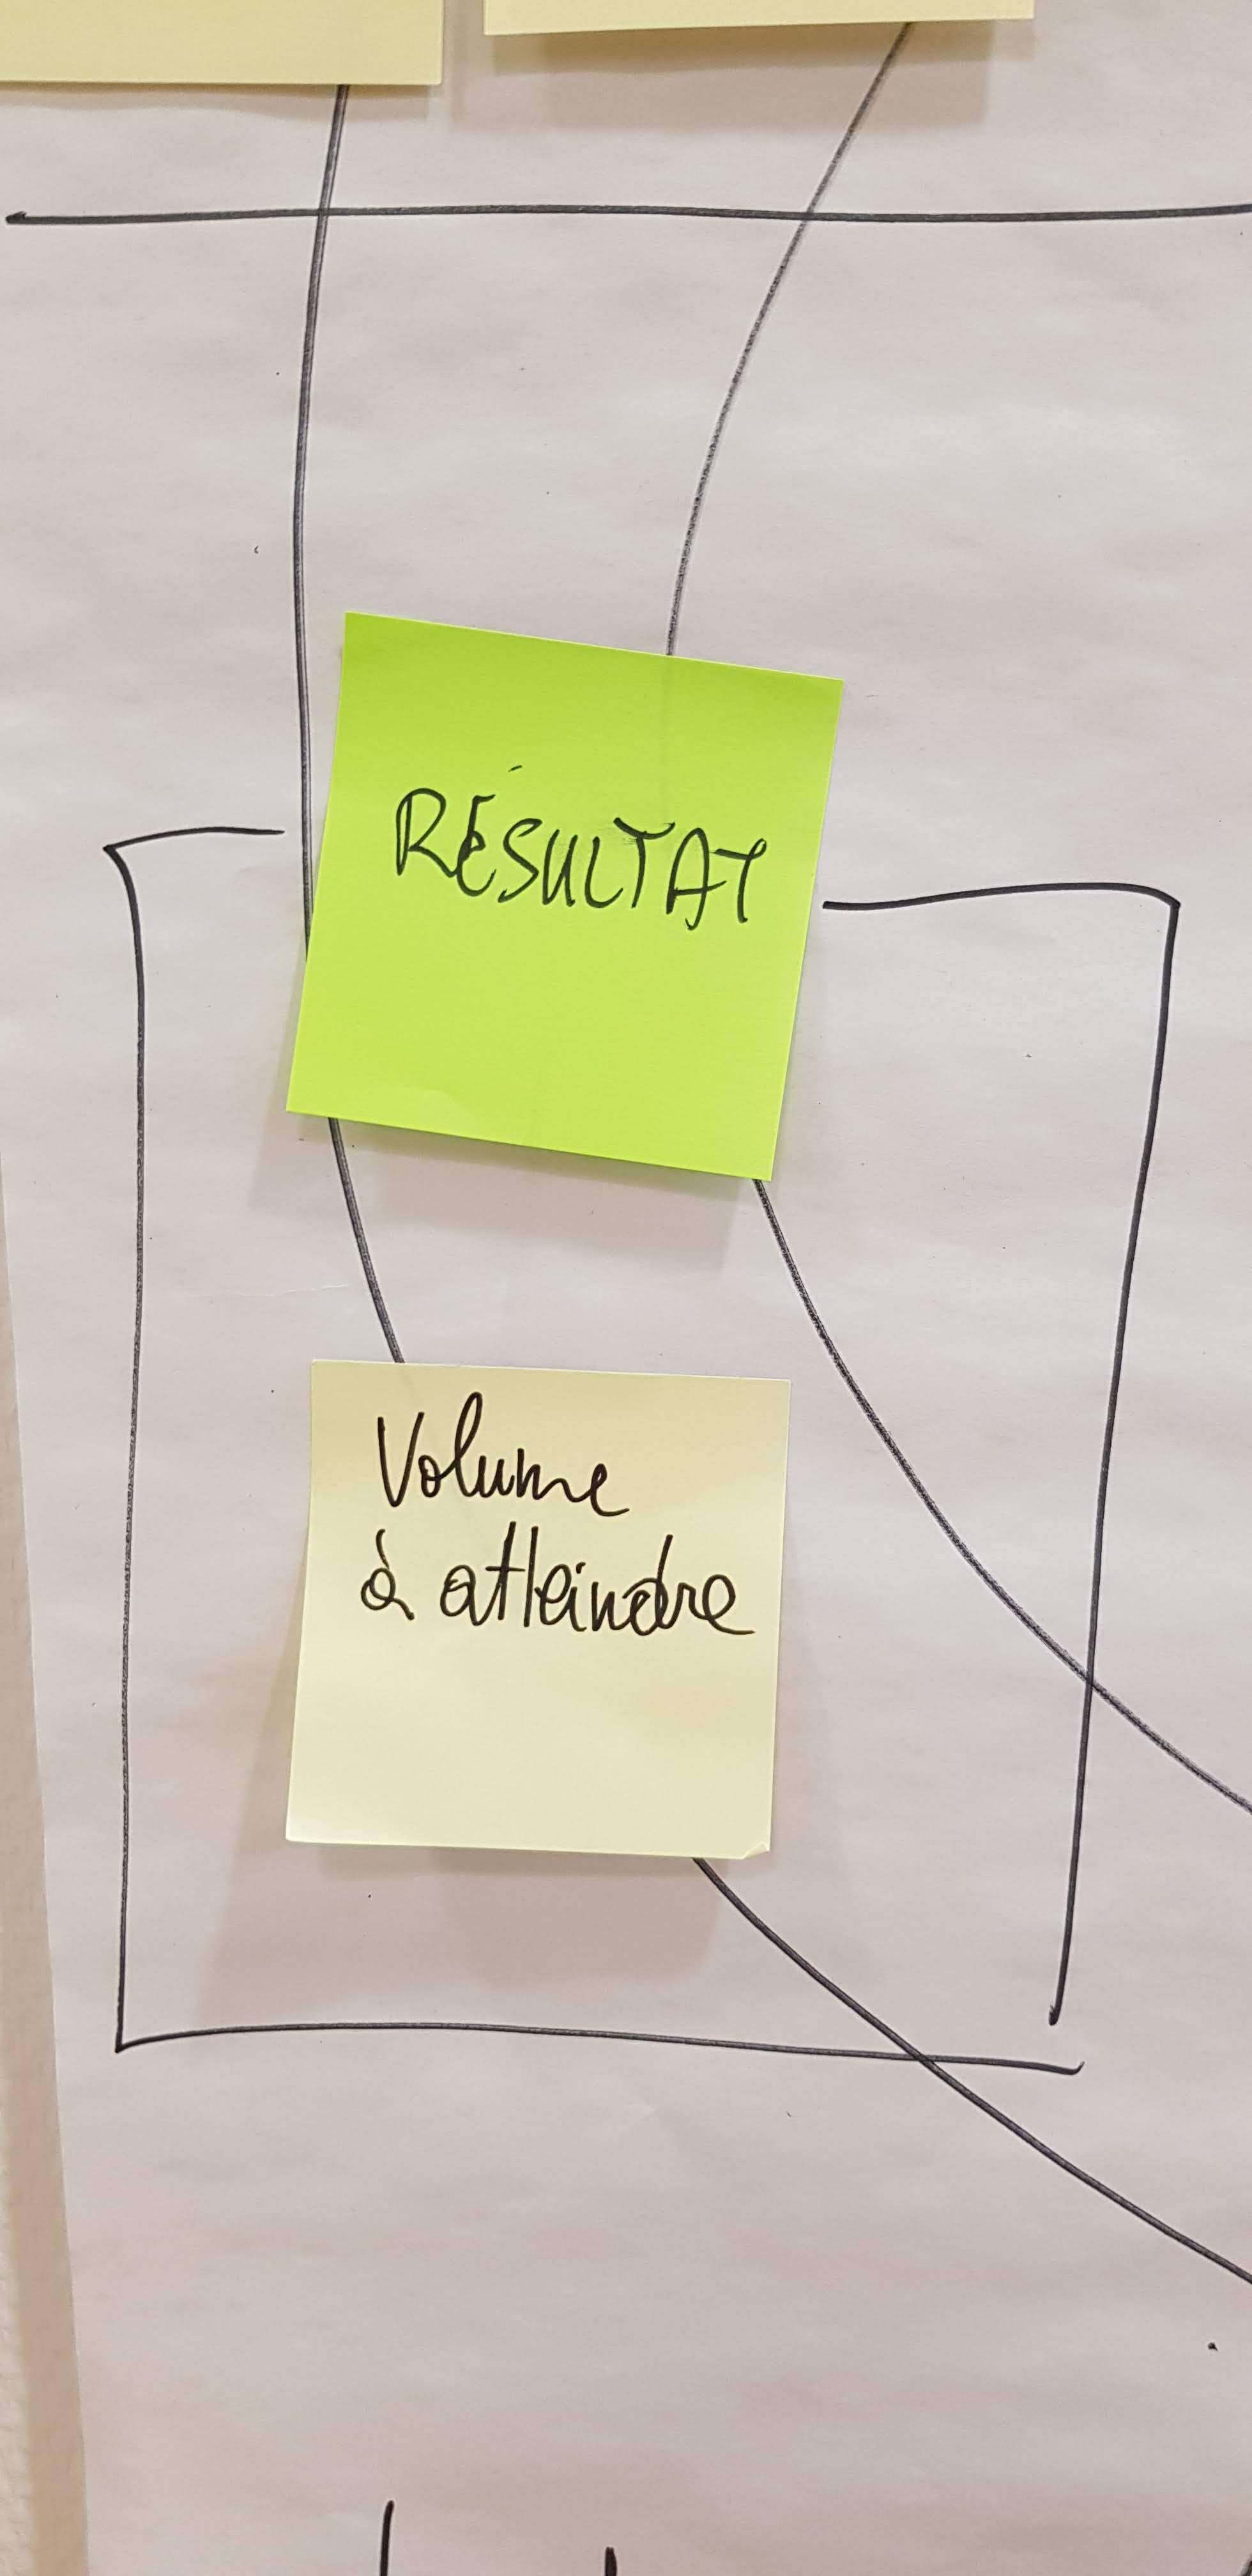 RÉSULTAT
Volume
à atteindre